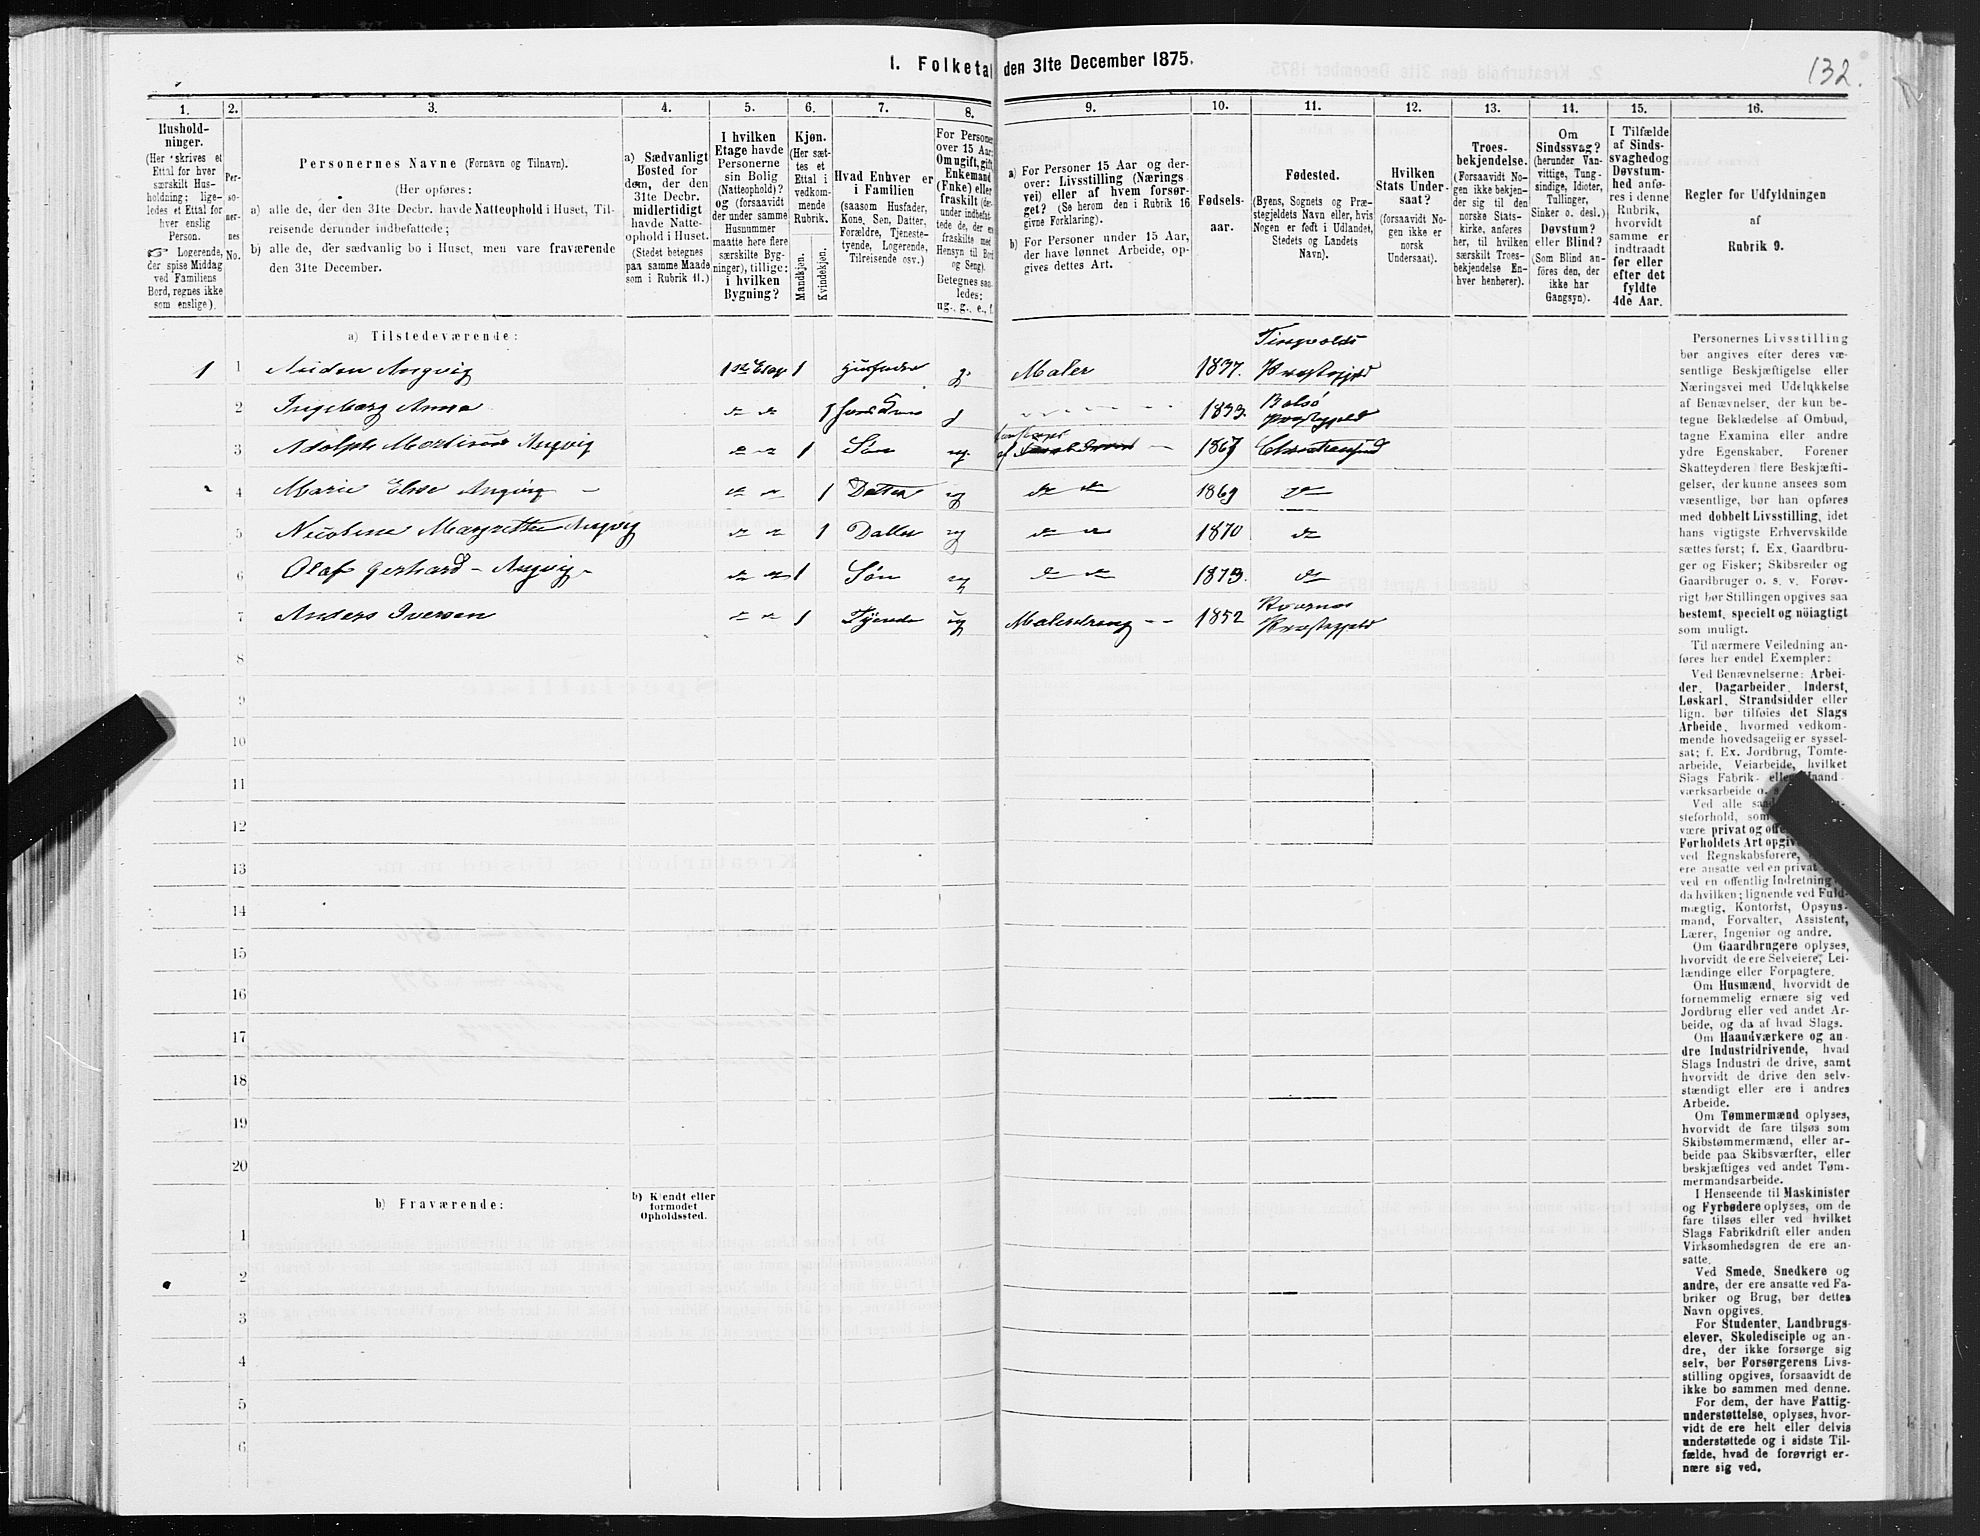 1. Folketal den 31te December 1875.
132.
1. 2. 3. 4. 5. 6. 7. 8. 9. 10. 11. 12. 13. 14. 15. 16.
Hushold-
ninger.
(Her skrives et
Ettal for hver
særskilt Hus-
holdning; lige-
ledes et Ettal for
hver enslig
Person.
☞ Logerende,
der spise Middag
ved Familiens
Bord, regnes ikke
som enslige).
Per-
so-
ner-
nes
No.
Personernes Navne (Fornavn og Tilnavn).
(Her opføres:
a) alle de, der den 31te Decbr. havde Natteophold i Huset, Til-
reisende derunder indbefattede;
b) alle de, der sædvanlig bo i Huset, men vare fraværende
den 31te December.
a) Sædvanligt
Bosted for
dem, der den
31te Decbr.
midlertidigt
havde Natte-
ophold i Huset.
(Stedet betegnes
paa samme Maade
som i Rubrik 11.)
I hvilken
Etage havde
Personerne
sin Bolig
(Natteophold)?
og (forsaavidt
der under samme
Husnummer
maatte høre flere
særskilte Byg-
ninger), tillige:
i hvilken
Bygning?
Kjøn.
(Her sæt-
tes et
Ettal i
vedkom-
mende
Rubrik.
Mandkjøn.
Kvindekjøn.
Hvad Enhver er
i Familien
(saasom Husfader,
Kone, Søn, Datter,
Forældre, Tjeneste-
tyende, Logerende,
Tilreisende osv.)
For Personer
over 15 Aar:
Om ugift, gift,
Enkemand
(Enke) eller
fraskilt
Hensyn til Bord
og Seng).
Betegnes saa-
ledes:
ug., g., e., f.
a) For Personer 15 Aar og der-
over: Livsstilling (Nærings
vei) eller af hvem forsør-
get? (Se herom den i Rubrik 16
givne Forklaring).
b) For Personer under 15 Aar,
der have lønnet Arbeide, op-
gives dettes Art.
Fødsels-
aar.
Fødested.
(Byens, Sognets og Præ-
stegjeldets Navn eller, hvis
Nogen er født i Udlandet,
Stedets og Landets
Navn).
Hvilken
Stats Under-
saat?
(forsaavidt No-
gen ikke er
norsk
Undersaat).
Troes-
bekjendelse.
(Forsaavidt No-
gen ikke bekjen-
der sig til den
norske Stats-
kirke, anføres
her, til hvilken
særskilt Troes-
bekjendelse En-
hver henhører).
Om
Sindssvag?
(herunder Van-
vittige, Tung-
sindige, Idioter,
Tullinger,
Sinker o. desl.)
Døvstum?
eller Blind?
(Som Blind an-
føres den, der
ikke har
Gangsyn).
I Tilfælde
af Sinds-
svaghed og
Døvstum-
hed anfø-
res i denne
Rubrik,
hvorvidt
samme er
indtraadt
før eller
efter det
fyldte
4de Aar.
Regler for Udfyldningen
af
Rubrik 9.
a) Tilstedeværende:
Tingvolds
1 1 Auden Angvig 1ste Etag 1 Husfader g. Maler 1837. Præstegjeld
2 Ingeborg Anna do do 1 hans Kone g 1833. Bolsø
Præstegjeld
3 Adolph Martinus Angvig do do 1 Søn ug. 1867 Christiansund
4 Marie Elise Angvig do do 1 Datter ug do do 1869 do
5 Nicoline Margrethe Angvig do do 1 Datter ug do do 1870 do
6 Olaf Gerhard Angvig do do 1 Søn ug do do 1873. do
7 Anders Iversen do do 1 Tyende ug Malerdreng 1852 Kvernes
Præstegjeld
8
9
10
11
12
13
14
15
16
17
18
19
20
b) Fraværende:
b) Kjendt eller
formodet
Opholdssted.
1
2
3
4
5
6
Personernes Livsstilling
bør angives efter deres væ-
sentlige Beskjæftigelse eller
Næringsvei med Udelukkelse
af Benævnelser, der kun be-
tegne Beklædelse af Ombud,
tagne Examina eller andre
ydre Egenskaber. Forener
Skatteyderen flere Beskjæfti-
gelser, der kunne ansees som
væsentlige, bør han opføres
med dobbelt Livsstilling, idet
hans vigtigste Erhvervskilde
sættes først; f. Ex. Gaardbru-
ger og Fisker; Skibsreder og
Gaardbruger o. s. v. Forøv-
rigt bør Stillingen opgives saa
bestemt, specielt og nøiagtigt
som muligt.
Til nærmere Veiledning an-
føres her endel Exempler:
Ved Benævnelserne: Arbei-
der, Dagarbeider, Inderst,
Løskarl, Strandsidder eller
lign. bør tilføies det Slags
Arbeide, hvormed vedkom-
mende hovedsagelig er syssel-
sat; f. Ex. Jordbrug, Tomte-
arbeide, Veiarbeide, hvilket
Slags Fabrik- eller Haand-
værksarbeide o. s.
Ved alle
steforhold, som
være privat og
Forholdets Art
ved Regnskabsførere,
ere ansatte ved en privat
ved en offentlig Indretning
da hvilken; lignende ved Fuld-
mægtig, Kontorist, Opsyns-
mand, Forvalter, Assistent,
Lærer, Ingeniør og andre.
Om Gaardbrugere oplyses,
hvorvidt de ere Selveiere, Lei-
lændinge eller Forpagtere.
Om Husmænd, hvorvidt de
fornemmelig ernære sig ved
Jordbrug eller ved andet Ar-
beide, og da af hvad Slags.
Om Haandværkere og an-
dre Industridrivende, hvad
Slags Industri de drive, samt
hvorvidt de drive den selv-
stændigt eller ere i andres
Arbeide.
Om Tømmermænd oplyses,
hvorvidt de fare tilsøs som
Skibstømmermænd, eller ar-
beide paa Skibsværfter, eller
beskjæftiges ved andet Tøm-
mermandsarbeide.
I Henseende til Maskinister
og Fyrbødere oplyses, om de
fare tilsøs eller ved hvilket
Slags Fabrikdrift eller anden
Virksomhedsgren de ere an-
satte.
Ved Smede, Snedkere og
andre, der ere ansatte ved Fa-
briker og Brug, bør dettes
Navn opgives.
For Studenter, Landbrugs-
elever, Skoledisciple og an-
dre, der ikke forsørge sig
selv, bør Forsørgerens Livs-
stilling opgives, forsaavidt de
ikke bo sammen med denne.
For dem, der have Fattig-
understøttelse, oplyses, hvor-
vidt de ere helt eller delvis
understøttede og i sidste Til-
fælde, hvad de forøvrigt er-
nære sig ved.